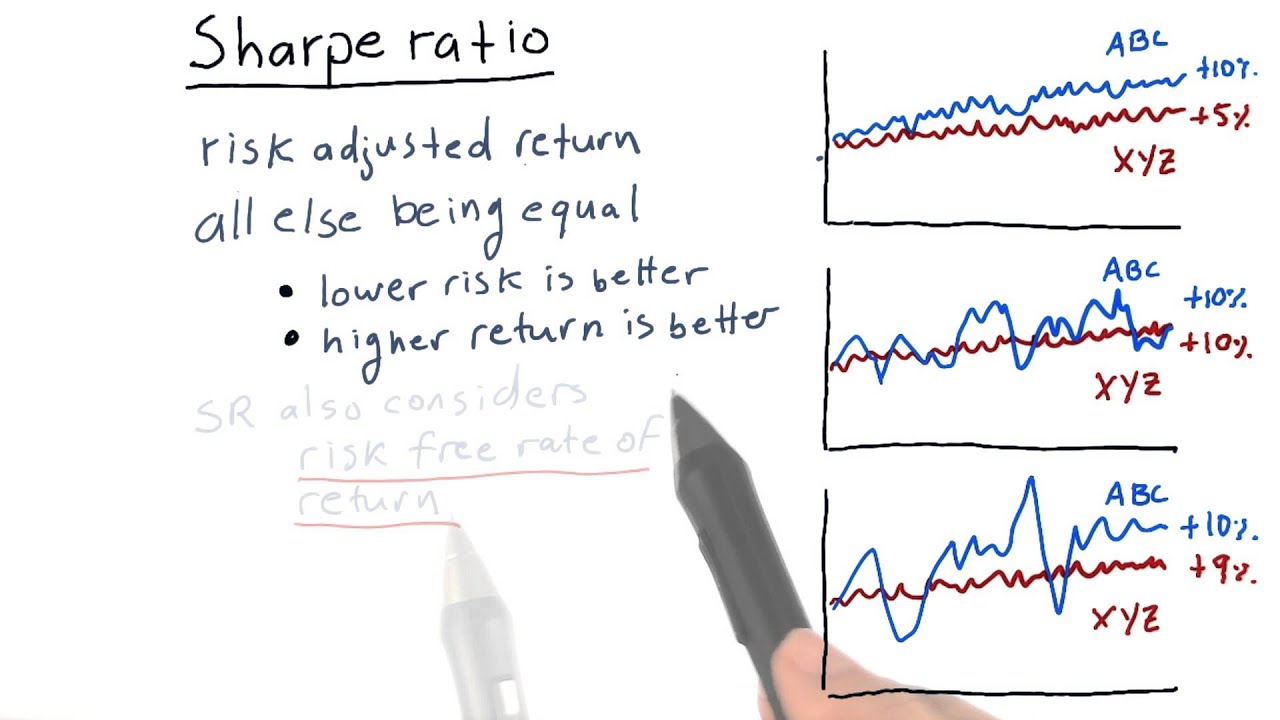 Sharpe ratio
risk adjusted return
all else being equal
• lower risk is better
• higher return is better
SR also considers
risk free rate of
return
ABC
+10%
+5%
XYZ
ABC
+10%
+10%
XYZ
ABC
+10%
+9%
XYZ